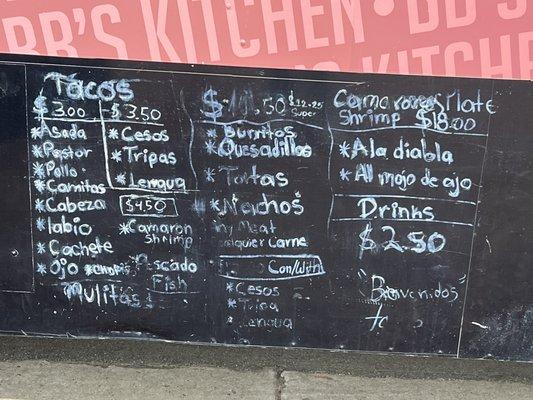 BB'S KITCHEN
BB'S
KITCHEN
Tacos
$3.00
*Asada
*Pastor
*Pollo
*Carnitas
*Cabeza
*labio
*Cachete
*Ojo
Mulitas
$3.50
*Cesos
*Tripas
*Lengua
$4.50
*Camaron
shrimp
Pescado
Fish
$11.50 $12.25
Super
*Burritos
*Quesadillas
*Tortas
*Nachos
Any Meat
Cualquier Carne
Con/with
*Cesos
*Tripa
*Lengua
Camarones Plate
Shrimp $18.00
*Ala diabla
*Al mojo de ajo
Drinks
$2.50
"Bienvenidos"